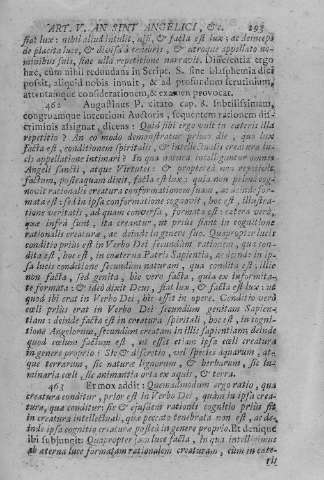 ART. V. AN SINT ANGELICI, &c. 293
fiat lux: nihil aliud intulit, nisi, & facta est lux: ac deinceps
de placita luce, & divisa à tenebris, & utroque appellato no-
minibus suis, sine ulla repetitione narravit. Differentia ergo
hæc, cum nihil redundans in Script. S. sine blasphemia dici
possit, aliquid nobis innuit, & ad profundum scrutinium,
attentamque considerationem, & examen provocat.
462 Augustinus P. citato cap. 8. subtilissimam,
congruamque intentioni Auctoris, sequentem rationem dis-
criminis assignat, dicens: Quid sibi ergo vult in cæteris illa
repetitio? An eo modo demonstratur primo die, quo lux
facta est, conditionem spiritalis, & intellectualis creaturæ lu-
cis appellatione intimari? In qua natura intelliguntur omnes
Angeli sancti, atque Virtutes: & propterea non repetivit
factum, posteaquam dixit, facta est lux: quia non prius cog-
novit rationalis creatura conformationem suam, ac deinde for-
mata est: sed in ipsa conformatione cognovit, hoc est, illustra-
tione veritatis, ad quam conversa, formata est: cætera verò,
quæ infrà sunt, ita creantur, ut prius fiant in cognitione
rationalis creaturæ, ac deinde in genere suo. Quapropter lucis
conditio prius est in Verbo Dei secundùm rationem, qua con-
dita est, hoc est, in coæterna Patris Sapientia, ac deinde in ip-
sa lucis conditione secundùm naturam, quæ condita est: illic
non facta, sed genita, hic verò facta, quia ex informitate
formata: & ideò dixit Deus, fiat lux, & facta est lux: ut
quod ibi erat in Verbo Dei, hic esset in opere. Conditio verò
cœli prius erat in Verbo Dei secundùm genitam Sapien-
tiam: deinde facta est in creatura spiritali, hoc est, in cogni-
tione Angelorum, secundùm creatam in illis sapientiam; deinde
quod cœlum factum est, ut esset etiam ipsa cœli creatura
in genere proprio: Sic & discretio, vel species aquarum, at-
que terrarum, sic naturæ lignorum, & herbarum, sic lu-
minaria cœli, sic animantia orta ex aquis, & terra.
463 Et mox addit: Quemadmodum ergo ratio, qua
creatura conditur, prior est in Verbo Dei, quàm ipsa crea-
tura, quæ conditur: sic & ejusdem rationis cognitio prius fit
in creatura intellectuali, quæ peccato tenebrata non est, ac de-
inde ipsa conditio creaturæ posteà in genere proprio. Et denique
ibi subjungit: Quapropter jam luce facta, in qua intelligimus
ab æterna luce formatam rationalem creaturam, cum in cæte-
ris